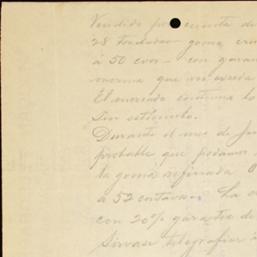 Vendido por cuenta de
28 toneladas goma
á 50 cvos - con garan
merma que no exceda
El mercado continua
Sin setiembre.
Durante el mes de Ju
probable que podamos
la goma refinada
á 52 centavos. La
con 20% garantia de
Sirvase telegrafiar